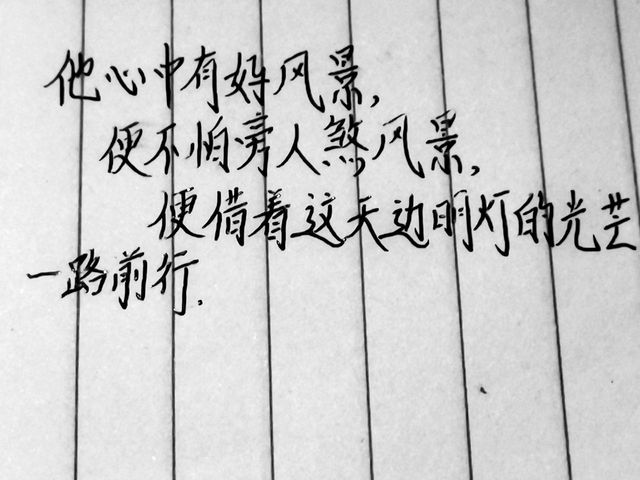 他心中有好风景,
便不怕旁人煞风景,
便借着这天边明灯的光芒
一路前行.